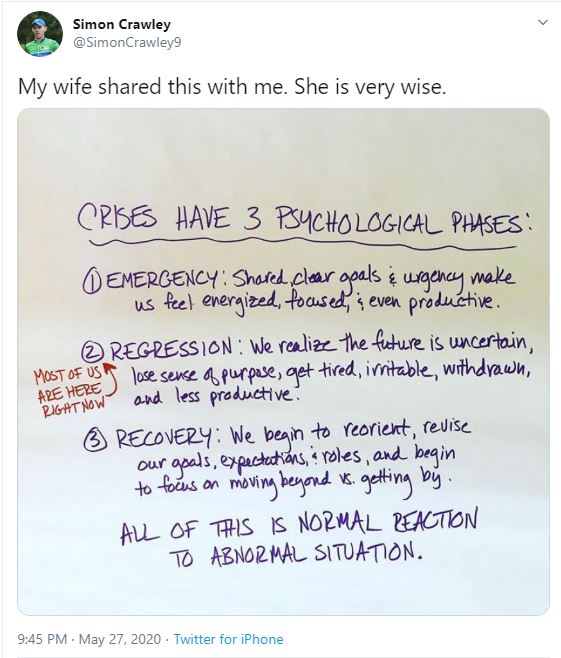 Simon Crawley
@SimonCrawley9
My wife shared this with me. She is very wise.
CRISES HAVE 3 PSYCHOLOGICAL PHASES:
① EMERGENCY: Shared, clear goals & urgency make
us feel energized, focused, & even productive.
② REGRESSION: We realize the future is uncertain,
lose sense of purpose, get tired, irritable, withdrawn,
and less productive.
MOST OF US
ARE HERE
RIGHT NOW
③ RECOVERY: We begin to reorient, revise
our goals, expectations, & roles, and begin
to focus on moving beyond vs. getting by.
ALL OF THIS IS NORMAL REACTION
TO ABNORMAL SITUATION.
9:45 PM · May 27, 2020 · Twitter for iPhone